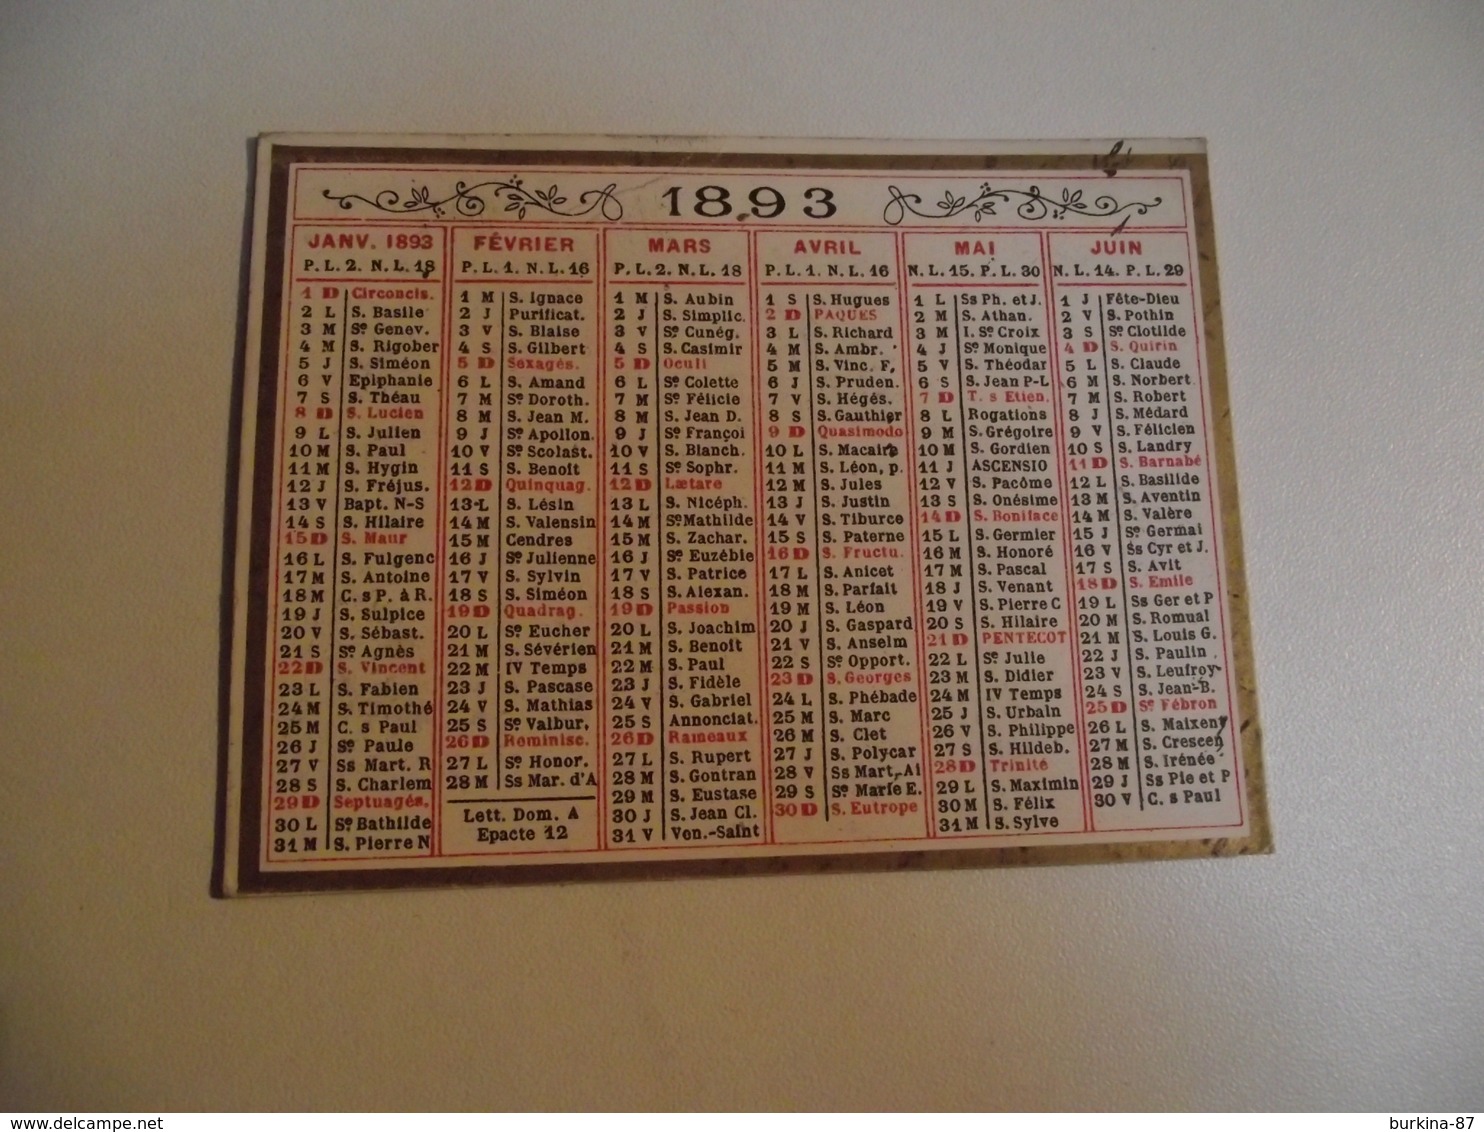 1893
JANV. 1893
P. L. 2. N. L. 18
1 D Circoncis.
2 L S. Basile
3 M Se Genev.
4 M S. Rigober
5 J S. Siméon
6 V Epiphanie
7 S S. Théau
8 D S. Lucien
9 L S. Julien
10 M S. Paul
11 M S. Hygin
12 J S. Fréjus.
13 V Bapt. N-S
14 S S. Hilaire
15 D S. Maur
16 L S. Fulgenc
17 M S. Antoine
18 M C. s P. à R.
19 J S. Sulpice
20 V S. Sébast.
21 S Se Agnès
22 D S. Vincent
23 L S. Fabien
24 M S. Timothé
25 M C. s Paul
26 J Se Paule
27 V Ss Mart. R
28 S S. Charlem
29 D Septuagés.
30 L Se Bathilde
31 M S. Pierre N
FÉVRIER
P. L. 1. N. L. 16
1 M S. Ignace
2 J Purificat.
3 V S. Blaise
4 S S. Gilbert
5 D Sexagés.
6 L S. Amand
7 M Se Doroth.
8 M S. Jean M.
9 J Se Apollon.
10 V Se Scolast.
11 S S. Benoît
12 D Quinquag.
13 L S. Lésin
14 M S. Valensin
15 M Cendres
16 J Se Julienne
17 V S. Sylvin
18 S S. Siméon
19 D Quadrag.
20 L Se Eucher
21 M S. Sévérien
22 M IV Temps
23 J S. Pascase
24 V S. Mathias
25 S Se Valbur.
26 D Reminisc.
27 L Se Honor.
28 M Ss Mar. d'A
Lett. Dom. A
Epacte 12
MARS
P. L. 2. N. L. 18
1 M S. Aubin
2 J S. Simplic.
3 V Se Cunég.
4 S S. Casimir
5 D Oculi
6 L Se Colette
7 M Se Félicie
8 M S. Jean D.
9 J Se Françoi
10 V S. Blanch.
11 S Se Sophr.
12 D Lætare
13 L S. Nicéph.
14 M Se Mathilde
15 M S. Zachar.
16 J Se Euzébie
17 V S. Patrice
18 S S. Alexan.
19 D Passion
20 L S. Joachim
21 M S. Benoît
22 M S. Paul
23 J S. Fidèle
24 V S. Gabriel
25 S Annonciat.
26 D Rameaux
27 L S. Rupert
28 M S. Gontran
29 M S. Eustase
30 J S. Jean Cl.
31 V Ven.-Saint
AVRIL
P. L. 1. N. L. 16
1 S S. Hugues
2 D PAQUES
3 L S. Richard
4 M S. Ambr.
5 M S. Vinc. F.
6 J S. Pruden.
7 V S. Hégés.
8 S S. Gauthier
9 D Quasimodo
10 L S. Macaire
11 M S. Léon, p.
12 M S. Jules
13 J S. Justin
14 V S. Tiburce
15 S S. Paterne
16 D S. Fructu.
17 L S. Anicet
18 M S. Parfait
19 M S. Léon
20 J S. Gaspard
21 V S. Anselm
22 S Se Opport.
23 D S. Georges
24 L S. Phébade
25 M S. Marc
26 M S. Clet
27 J S. Polycar
28 V Ss Mart. Ai
29 S Se Marie E.
30 D S. Eutrope
MAI
N. L. 15. P. L. 30
1 L Ss Ph. et J.
2 M S. Athan.
3 M I. Se Croix
4 J Se Monique
5 V S. Théodar
6 S S. Jean P-L
7 D T. s Etien.
8 L Rogations
9 M S. Grégoire
10 M S. Gordien
11 J ASCENSIO
12 V S. Pacôme
13 S S. Onésime
14 D S. Boniface
15 L S. Germier
16 M S. Honoré
17 M S. Pascal
18 J S. Venant
19 V S. Pierre C
20 S S. Hilaire
21 D PENTECOT
22 L Se Julie
23 M S. Didier
24 M IV Temps
25 J S. Urbain
26 V S. Philippe
27 S S. Hildeb.
28 D Trinité
29 L S. Maximin
30 M S. Félix
31 M S. Sylve
JUIN
N. L. 14. P. L. 29
1 J Fête-Dieu
2 V S. Pothin
3 S Se Clotilde
4 D S. Quirin
5 L S. Claude
6 M S. Norbert
7 M S. Robert
8 J S. Médard
9 V S. Félicien
10 S S. Landry
11 D S. Barnabé
12 L S. Basilide
13 M S. Aventin
14 M S. Valère
15 J Se Germai
16 V Ss Cyr et J.
17 S S. Avit
18 D S. Emile
19 L Ss Ger et P
20 M S. Romual
21 M S. Louis G.
22 J S. Paulin
23 V S. Leufroy
24 S S. Jean-B.
25 D Se Fébron
26 L S. Maixen
27 M S. Crescen
28 M S. Irénée
29 J Ss Pie et P
30 V C. s Paul
burkina-87